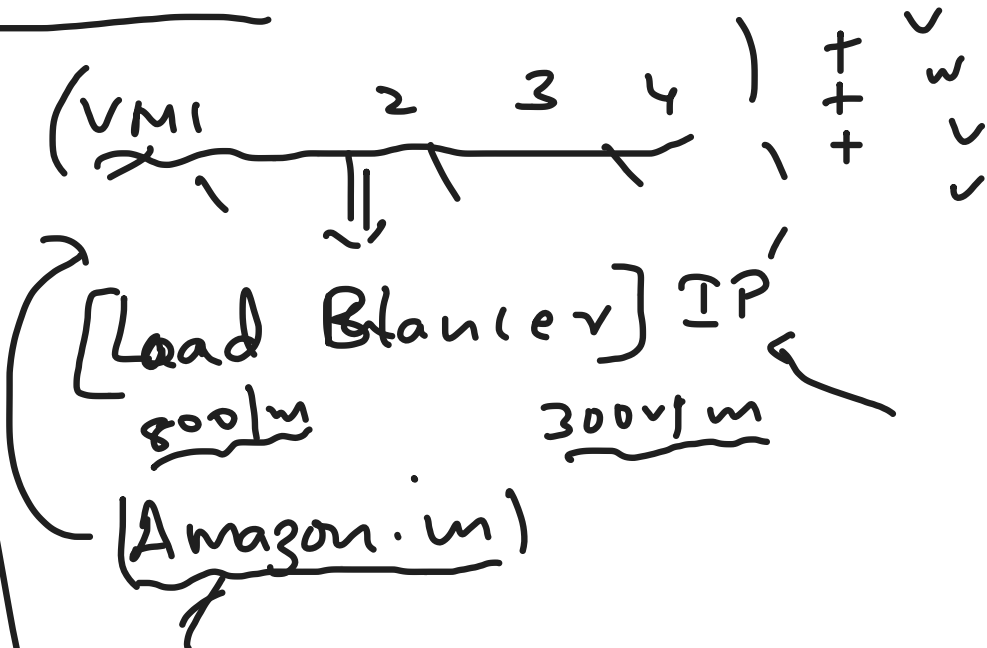 (VM1 2 3 4 ) + v
+ w
+ v
v
[Load Blancer] IP
800/m 300v/m
(Amazon.in)